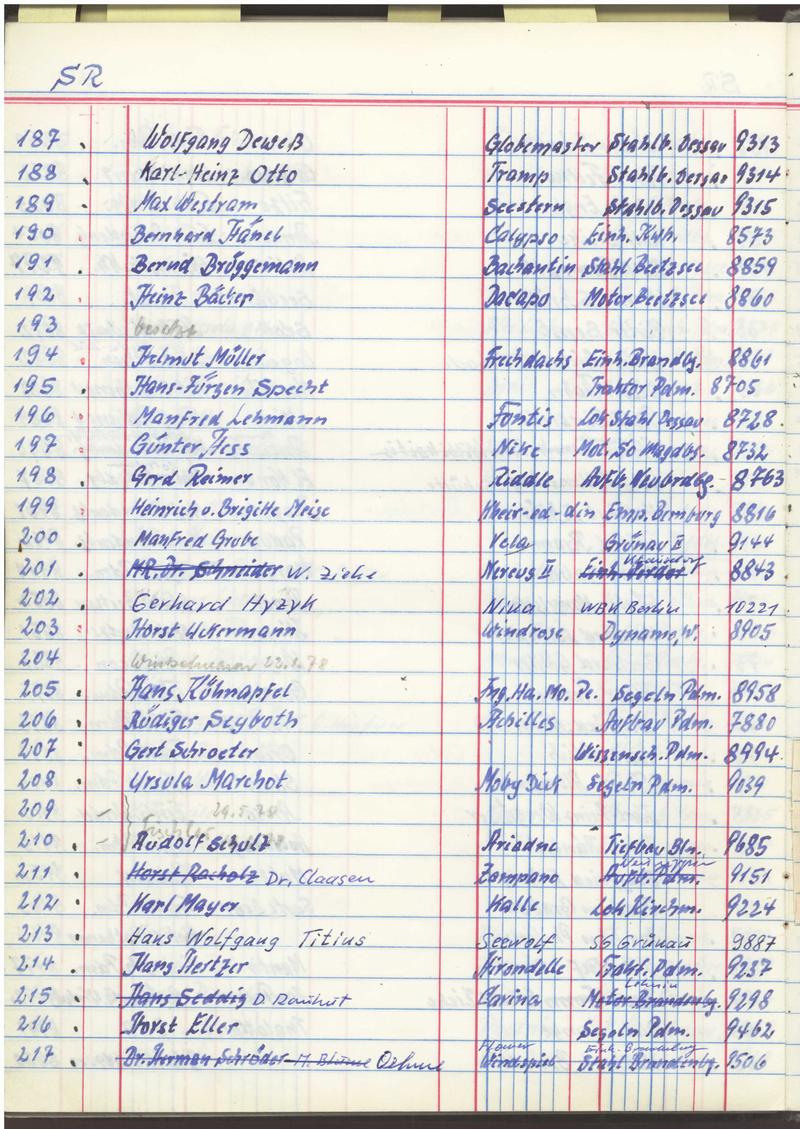 SR
187 Wolfgang Deweß Globemaster Stahlb. Dessau 9313
188 Karl-Heinz Otto Tramp Stahlb. Dessau 9314
189 Max Westram Seestern Stahlb. Dessau 9315
190 Bernhard Hänel Calypso Einh. 8573
191 Bernd Brüggemann Bachantin Stahl Beetzsee 8859
192 Heinz Bäcker Dacapo Motor Beetzsee 8860
193 besetzt
194 Helmut Müller Frechdachs Einh. Brandbg. 8861
195 Hans-Jürgen Specht Traktor Pdm. 8705
196 Manfred Lehmann Fontis Lok Stahl Dessau 8728
197 Günter Hess Nike Mot. So Magdbg. 8732
198 Gerd Reimer Riddle Aufb. Neubrdbg. 8763
199 Heinrich u. Brigitte Meise Kheir-ed-din Emp. Bernburg 8816
200 Manfred Grube Vela Grünau II 9144
201 Dr. Schneider W. Ziehe Nereus II Einh. Werder 8843
202 Gerhard Hyzyk Nixa WBK Berlin 10221
203 Horst Uckermann Windrose Dynamo W. 8905
204 23.1.78
205 Hans Kühnapfel Ing. Ha. Mo. Pe. Segeln Pdm. 8958
206 Rüdiger Seyboth Achilles Aufbau Pdm. 7880
207 Gert Schroeter Wissensch. Pdm. 8994
208 Ursula Marchot Moby Dick Segeln Pdm. 9039
209
210 Rudolf Schulz Ariadne Tiefbau Bln. 9685
211 Horst Racholz Dr. Claasen Zampano Aufb. Pdm. 9151
212 Karl Mayer Kalle Lok Kirchm. 9224
213 Hans Wolfgang Titius Seewolf SG Grünau 9887
214 Hans Hertzer Hirondelle Trakt. Pdm. 9237
Lehnin
215 Hans Seddig D. Rauhut Carina Motor Brandenbg. 9298
216 Horst Eller Segeln Pdm. 9462
Flower Einh. Brandenburg
217 Dr. Herman Schröder H. Blume Oehme Windspiel Stahl Brandenbg. 9506